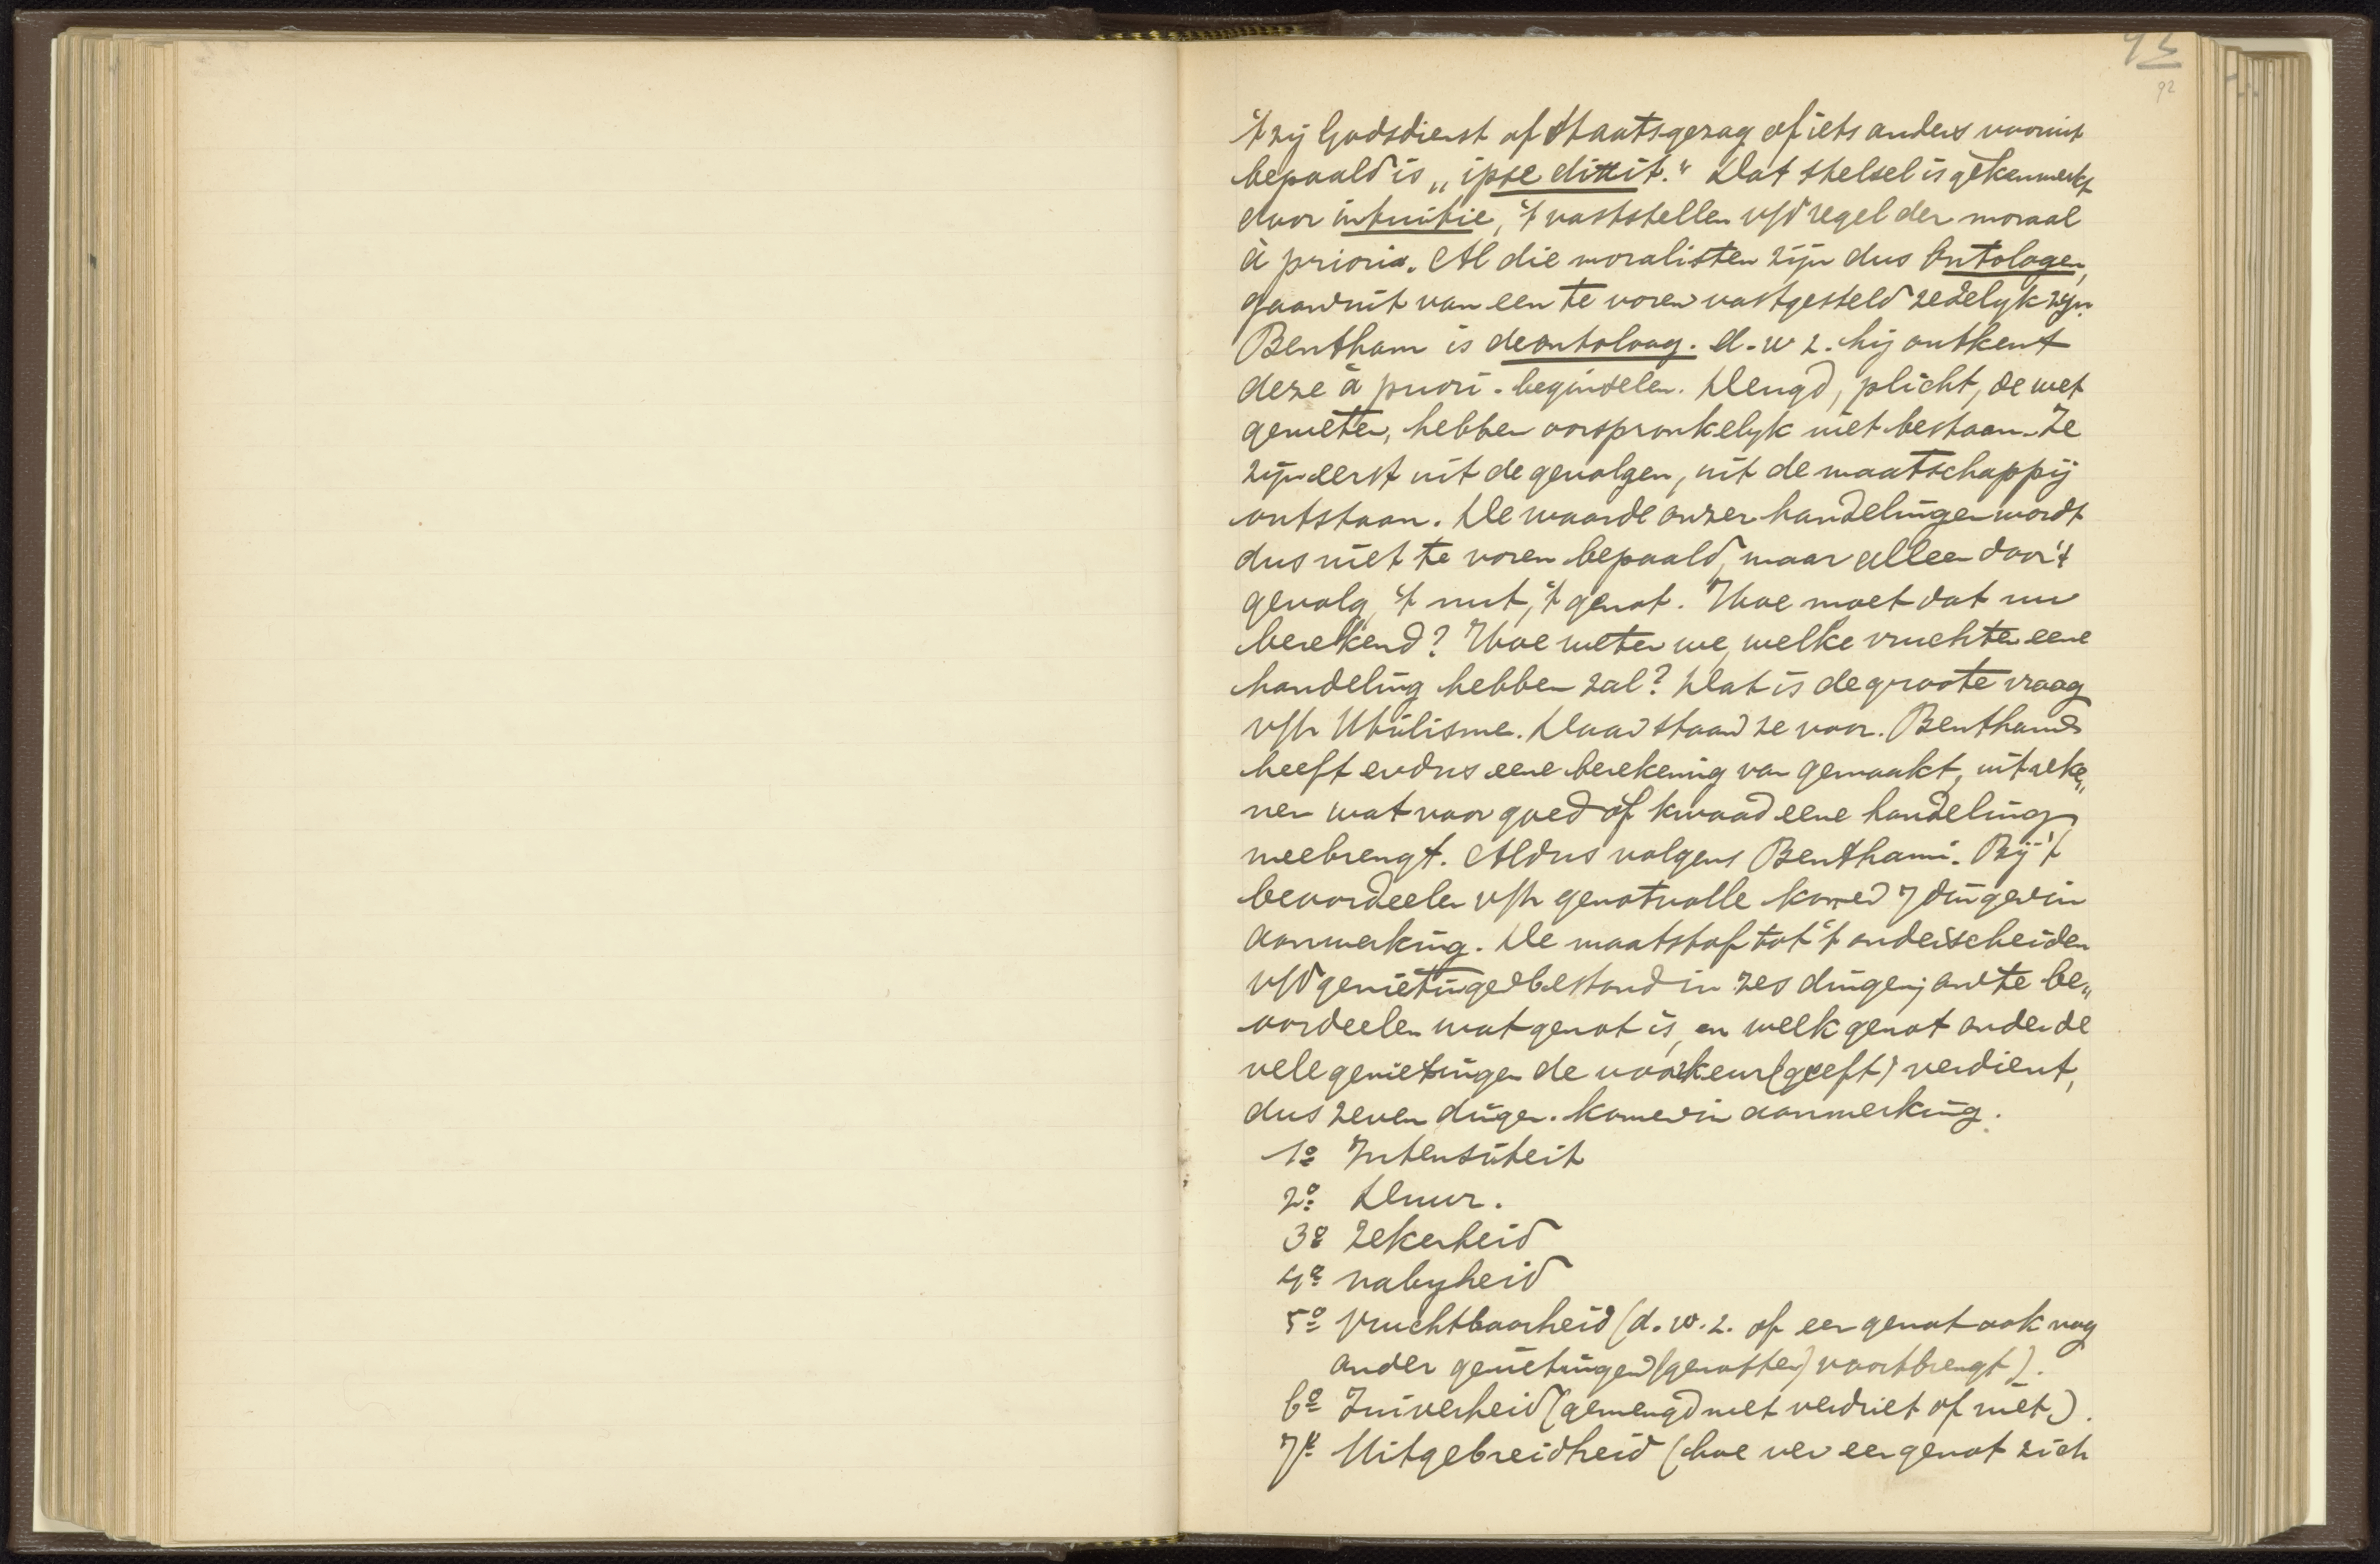 93
92
't zij Godsdienst of Staatsgezag of iets anders vooruit
bepaald is „ipse dixit." Dat stelsel is gekenmerkt
door intuitie, 't vaststellen v/d regel der moraal
à priori. Al die moralisten zijn dus Ontologen,
gaan uit van een te voren vastgesteld zedelyk zyn.
Bentham is deontoloog. d.w z. hij ontkent
deze à priori-beginselen. Deugd, plicht, de wet
genieten, hebben oorspronkelyk niet bestaan. Ze
zijn eerst uit de gevolgen, uit de maatschappij
ontstaan. De waarde onzer handelingen wordt
dus niet te voren bepaald, maar alleen door 't
gevolg, 't nut, 't genot. Hoe moet dat nu
berekend? Hoe weten we, welke vruchten eene
handeling hebben zal? Dat is de groote vraag
v/h Utilisme. Daar staan ze voor. Bentham
heeft er dus eene berekening van gemaakt, uitreke„
nen wat voor goed of kwaad eene handeling
meebrengt. Aldus volgens Bentham. Bij 't
beoordeelen v/h genotvolle komen 7 dingen in
aanmerking. De maatstaf tot 't onderscheiden
v/d genietingen bestond in zes dingen; om te be„
oordeelen wat genot is, en welk genot onder de
vele genietingen de voorkeur (geeft) verdient,
dus zeven dingen komen in aanmerking.
1º Intensiteit
2º Duur.
3º Zekerheid
4º nabyheid
5º Vruchtbaarheid (d.w.z. of een genot ook nog
ander genietingen (genotten) voortbrengt).
6º Zuiverheid (gemengd met verdriet of niet).
7º Uitgebreidheid (hoe ver een genot zich